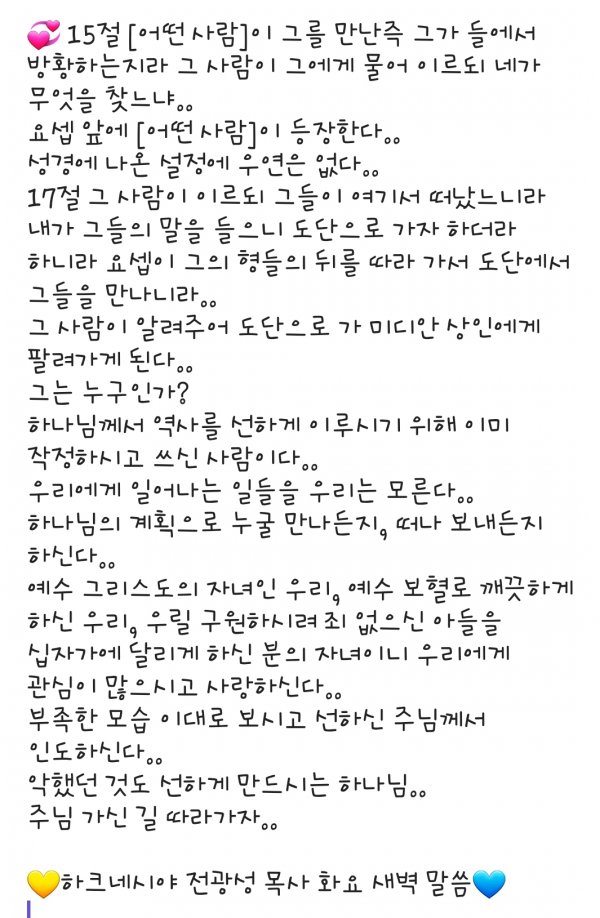 💞 15절 [어떤 사람]이 그를 만난즉 그가 들에서
방황하는지라 그 사람이 그에게 물어 이르되 네가
무엇을 찾느냐。。
요셉 앞에 [어떤 사람]이 등장한다。。
성경에 나온 설정에 우연은 없다。。
17절 그 사람이 이르되 그들이 여기서 떠났느니라
내가 그들의 말을 들으니 도단으로 가자 하더라
하니라 요셉이 그의 형들의 뒤를 따라 가서 도단에서
그들을 만나니라。。
그 사람이 알려주어 도단으로 가 미디안 상인에게
팔려가게 된다。。
그는 누구인가?
하나님께서 역사를 선하게 이루시기 위해 이미
작정하시고 쓰신 사람이다。。
우리에게 일어나는 일들을 우리는 모른다。。
하나님의 계획으로 누굴 만나든지, 떠나 보내든지
하신다。。
예수 그리스도의 자녀인 우리, 예수 보혈로 깨끗하게
하신 우리, 우릴 구원하시려 죄 없으신 아들을
십자가에 달리게 하신 분의 자녀이니 우리에게
관심이 많으시고 사랑하신다。。
부족한 모습 이대로 보시고 선하신 주님께서
인도하신다。。
악했던 것도 선하게 만드시는 하나님。。
주님 가신 길 따라가자。。
💛하크네시야 전광성 목사 화요 새벽 말씀💙